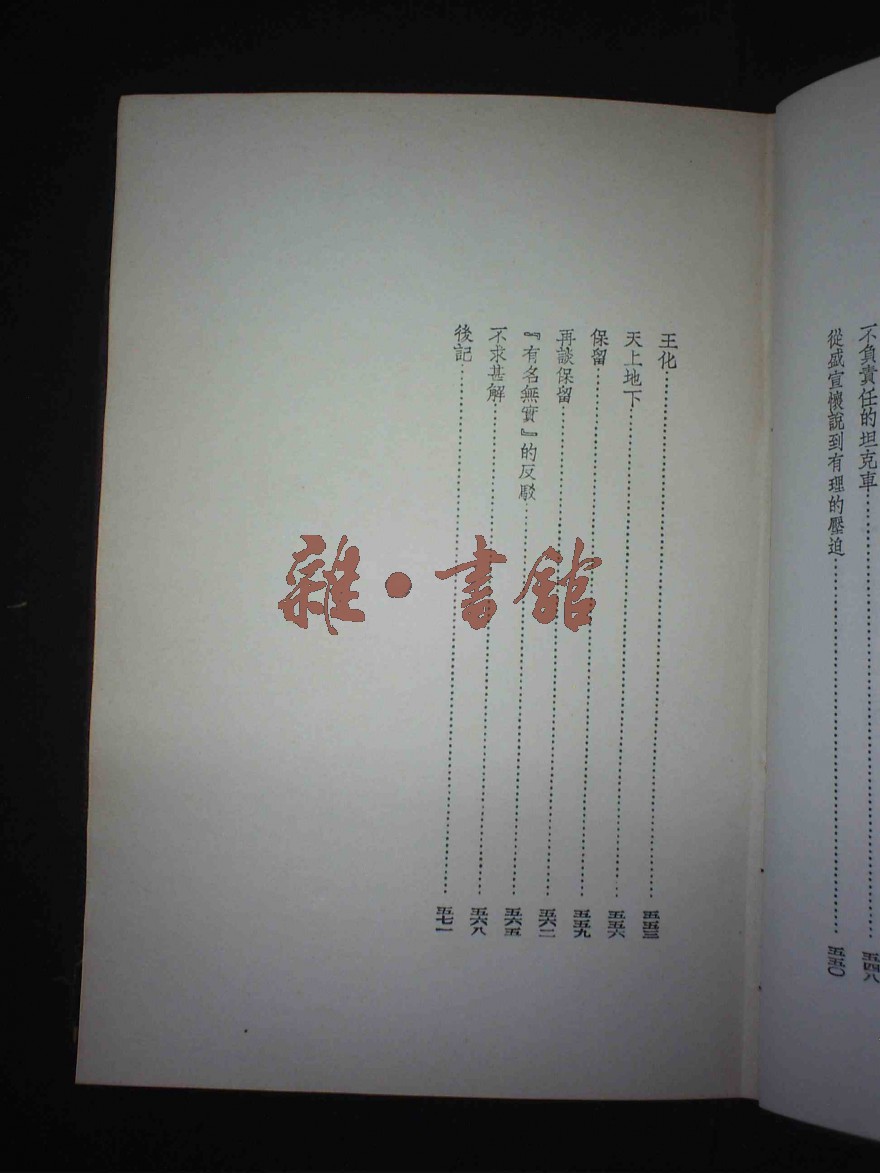 不負責任的坦克車……五四八
從盛宣懷說到有理的壓迫……五五〇
王化……五五三
天上地下……五五六
保留……五五九
再談保留……五六二
『有名無實』的反駁……五六五
不求甚解……五六八
後記……五七一
雜•書館